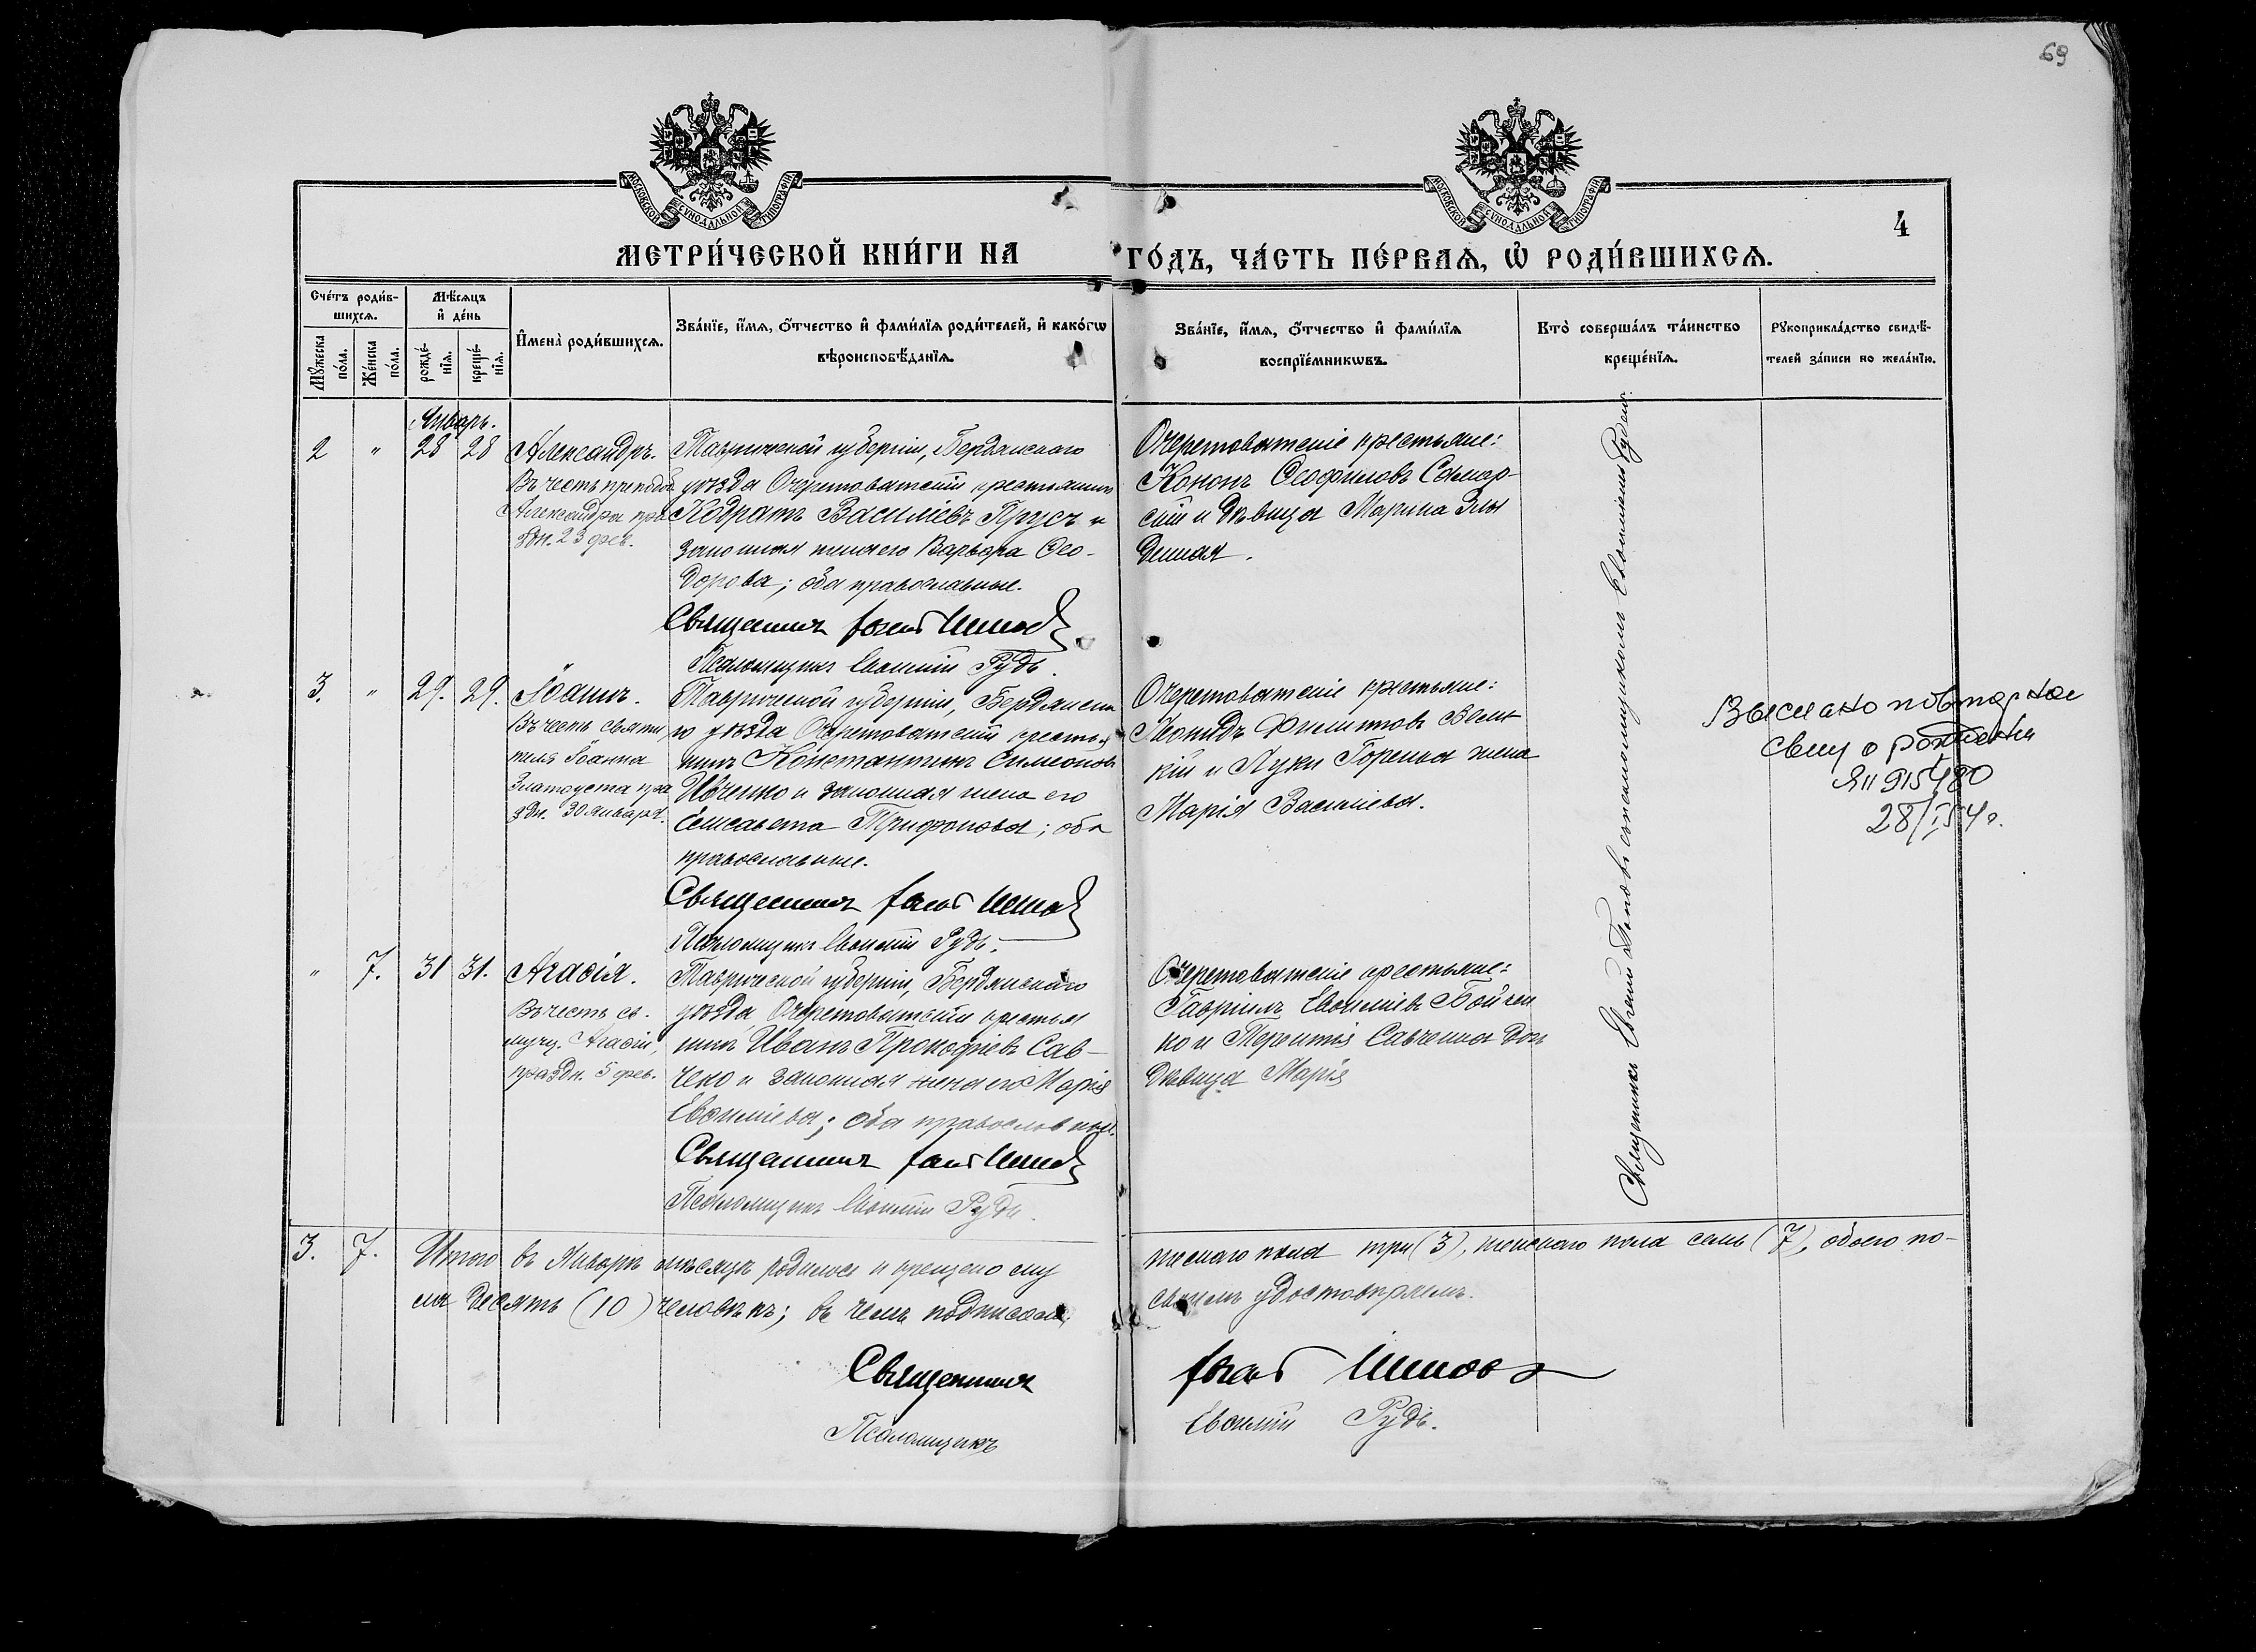 69
МОСКОВСКОЙ СѴНОДАЛЬНОЙ ТИПОГРАФІИ
МОСКОВСКОЙ СѴНОДАЛЬНОЙ ТИПОГРАФІИ
4
МЕТРИ́ЧЕСКОЙ КНИ́ГИ НА ГО́ДЪ, ЧА́СТЬ ПЕ́РВАѦ, Ѡ҆ РОДИ́ВШИХСѦ.
Сче́тъ роди́в-
шихсѧ.
Мꙋ́жеска по́ла.
Же́нска по́ла.
Мѣ́сѧцъ
и҆ де́нь
рожде́-
нїѧ.
креще́-
нїѧ.
И҆мена̀ роди́вшихсѧ.
Зва́нїе, и҆́мѧ, ѻ҆́тчество и҆ фами́лїѧ роди́телей, и҆ како́гѡ
вѣроисповѣ́данїѧ.
Зва́нїе, и҆́мѧ, ѻ҆́тчество и҆ фами́лїѧ
воспрїе́мникѡвъ.
Кто̀ соверша́лъ та́инство
креще́нїѧ.
Рꙋкоприкла́дство свидѣ́-
телей за́писи по жела́нїю.
Январь.
2 " 28 28 Александръ.
Въ честь препод.
Александра пра
здн. 23 фев.
Таврической губерніи, Бердянскаго
уѣзда Очеретоватскій крестьянинъ
Кодратъ Василіевъ Прусъ и
законная жена его Варвара Ѳео-
дорова; оба православные.
Священникъ
Псаломщикъ Евѳимій Рудь.
Очеретоватскіе крестьяне:
Кононъ Ѳеофиловъ Самар-
скій и дѣвица Марина
3. " 29. 29. Іоаннъ.
Въ честь святи
теля Іоанна
Златоуста пра
здн. 30 января.
Таврической губерніи, Бердянска
го уѣзда Очеретоватскій крестья
нинъ Константинъ Симеоновъ
Ивченко и законная жена его
Елисавета Трифонова; оба
православные.
Священникъ
Псаломщикъ Евѳимій Рудь.
Очеретоватскіе крестьяне:
Леонидъ Филиповъ Вели
кій и Луки Горенка жена
Марія Василіева.
Выслано повторное
свид о рождении
ЯП 915480
28/I 54 г.
" 7. 31 31. Агаѳія.
Въ честь св.
муч. Агаѳіи,
праздн. 5 фев.
Таврической губерніи, Бердянскаго
уѣзда Очеретоватскій крестья
нинъ Иванъ Прокофіевъ Сав-
ченко и законная жена его Марія
Евѳиміева; оба православные.
Священникъ
Псаломщикъ Евѳимій Рудь.
Очеретоватскіе крестьяне:
Гавріилъ Евѳиміевъ Бойчен
ко и Терентія Савченка дочь
дѣвица Марія
Священникъ Евгеній Поповъ съ псаломщикомъ Евѳиміемъ Рудемъ.
3. 7. Итого въ Январѣ мѣсяцѣ родилось и крещено му
жескаго пола три (3), женскаго пола семь (7), обоего по-
ла десять (10) человѣкъ; въ чемъ подписомъ
своимъ удостовѣряемъ.
Священникъ
Псаломщикъ Евѳимій Рудь.